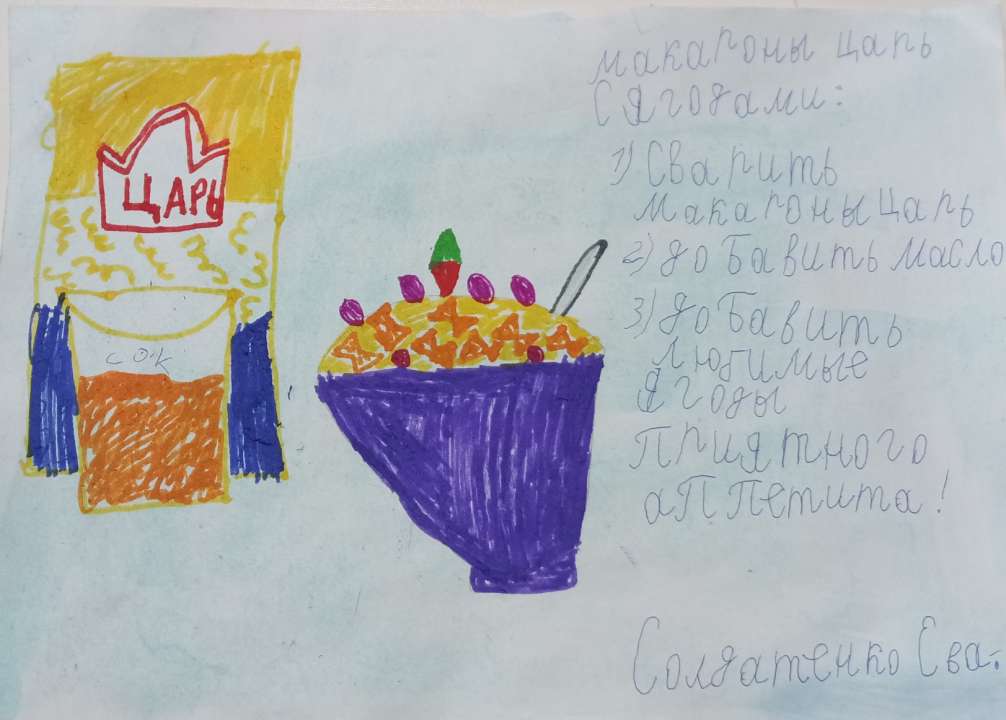 ЦАРЬ
СОК
макароны царь
С ягодами:
1) Сварить
макароны царь
2) добавить масло
3) добавить
любимые
ягоды
Приятного
аппетита!
Солдатенко Ева.